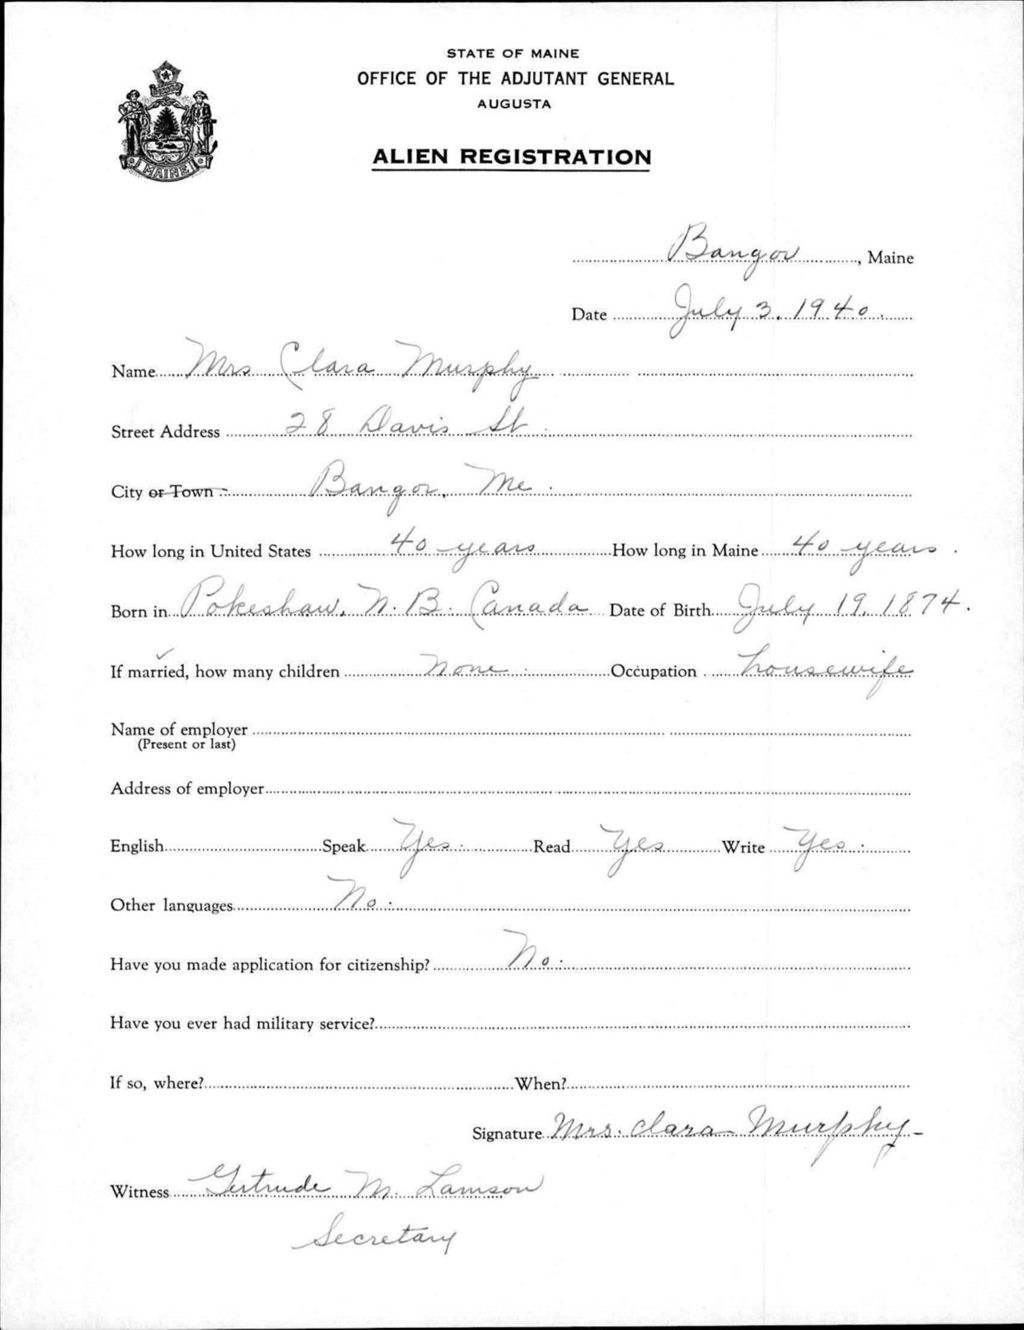 STATE OF MAINE
OFFICE OF THE ADJUTANT GENERAL
AUGUSTA
ALIEN REGISTRATION
MAINE
Bangor, Maine
Date July 3, 1940.
Name Mrs Clara Murphy
Street Address 28 Davis St.
City or Town Bangor, Me.
How long in United States 40 years How long in Maine 40 years.
Born in Pokeshaw, N. B. Canada Date of Birth July 19, 1874.
If married, how many children None. Occupation housewife
Name of employer
(Present or last)
Address of employer
English Speak Yes. Read Yes Write Yes.
Other languages No.
Have you made application for citizenship? No.
Have you ever had military service?
If so, where? When?
Signature Mrs. Clara Murphy
Witness Gertrude M. Lamson
Secretary